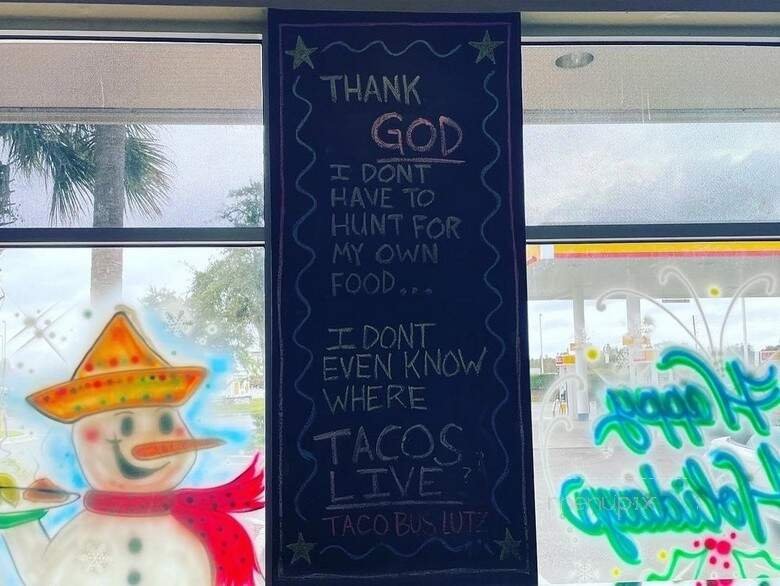 THANK
GOD
I DONT
HAVE TO
HUNT FOR
MY OWN
FOOD...
I DONT
EVEN KNOW
WHERE
TACOS
LIVE?
TACO BUS LUTZ
Happy
Holidays
menupix